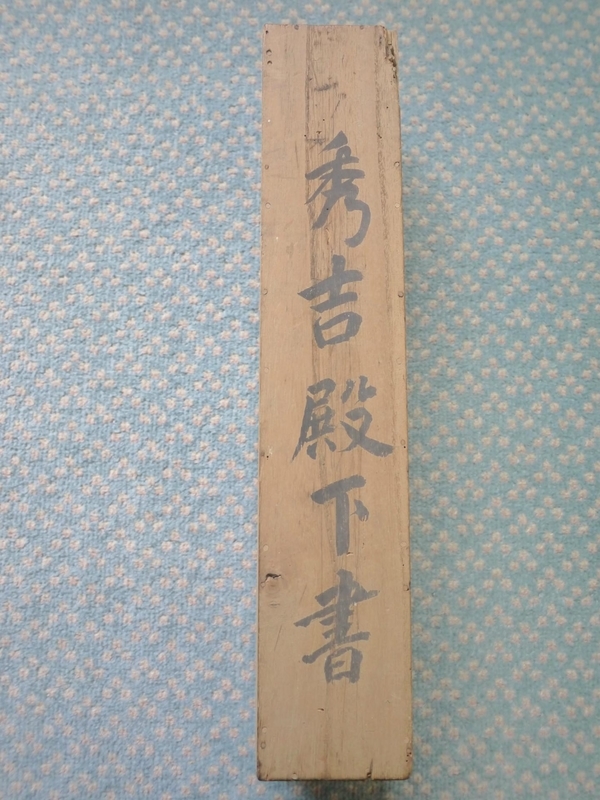 秀吉殿下書